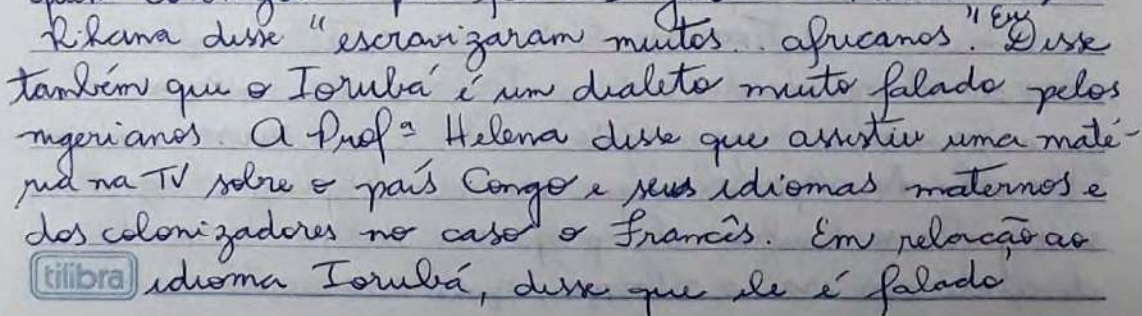 Rhana disse "escravizaram muitos.. africanos." Eu Disse
também que o Iorubá é um dialeto muito falado pelos
nigerianos. A Profª Helena disse que assistiu uma maté-
ria na TV sobre o país Congo e seus idiomas maternos e
dos colonizadores no caso o Francês. Em relação ao
tilibra idioma Iorubá, disse que ele é falado